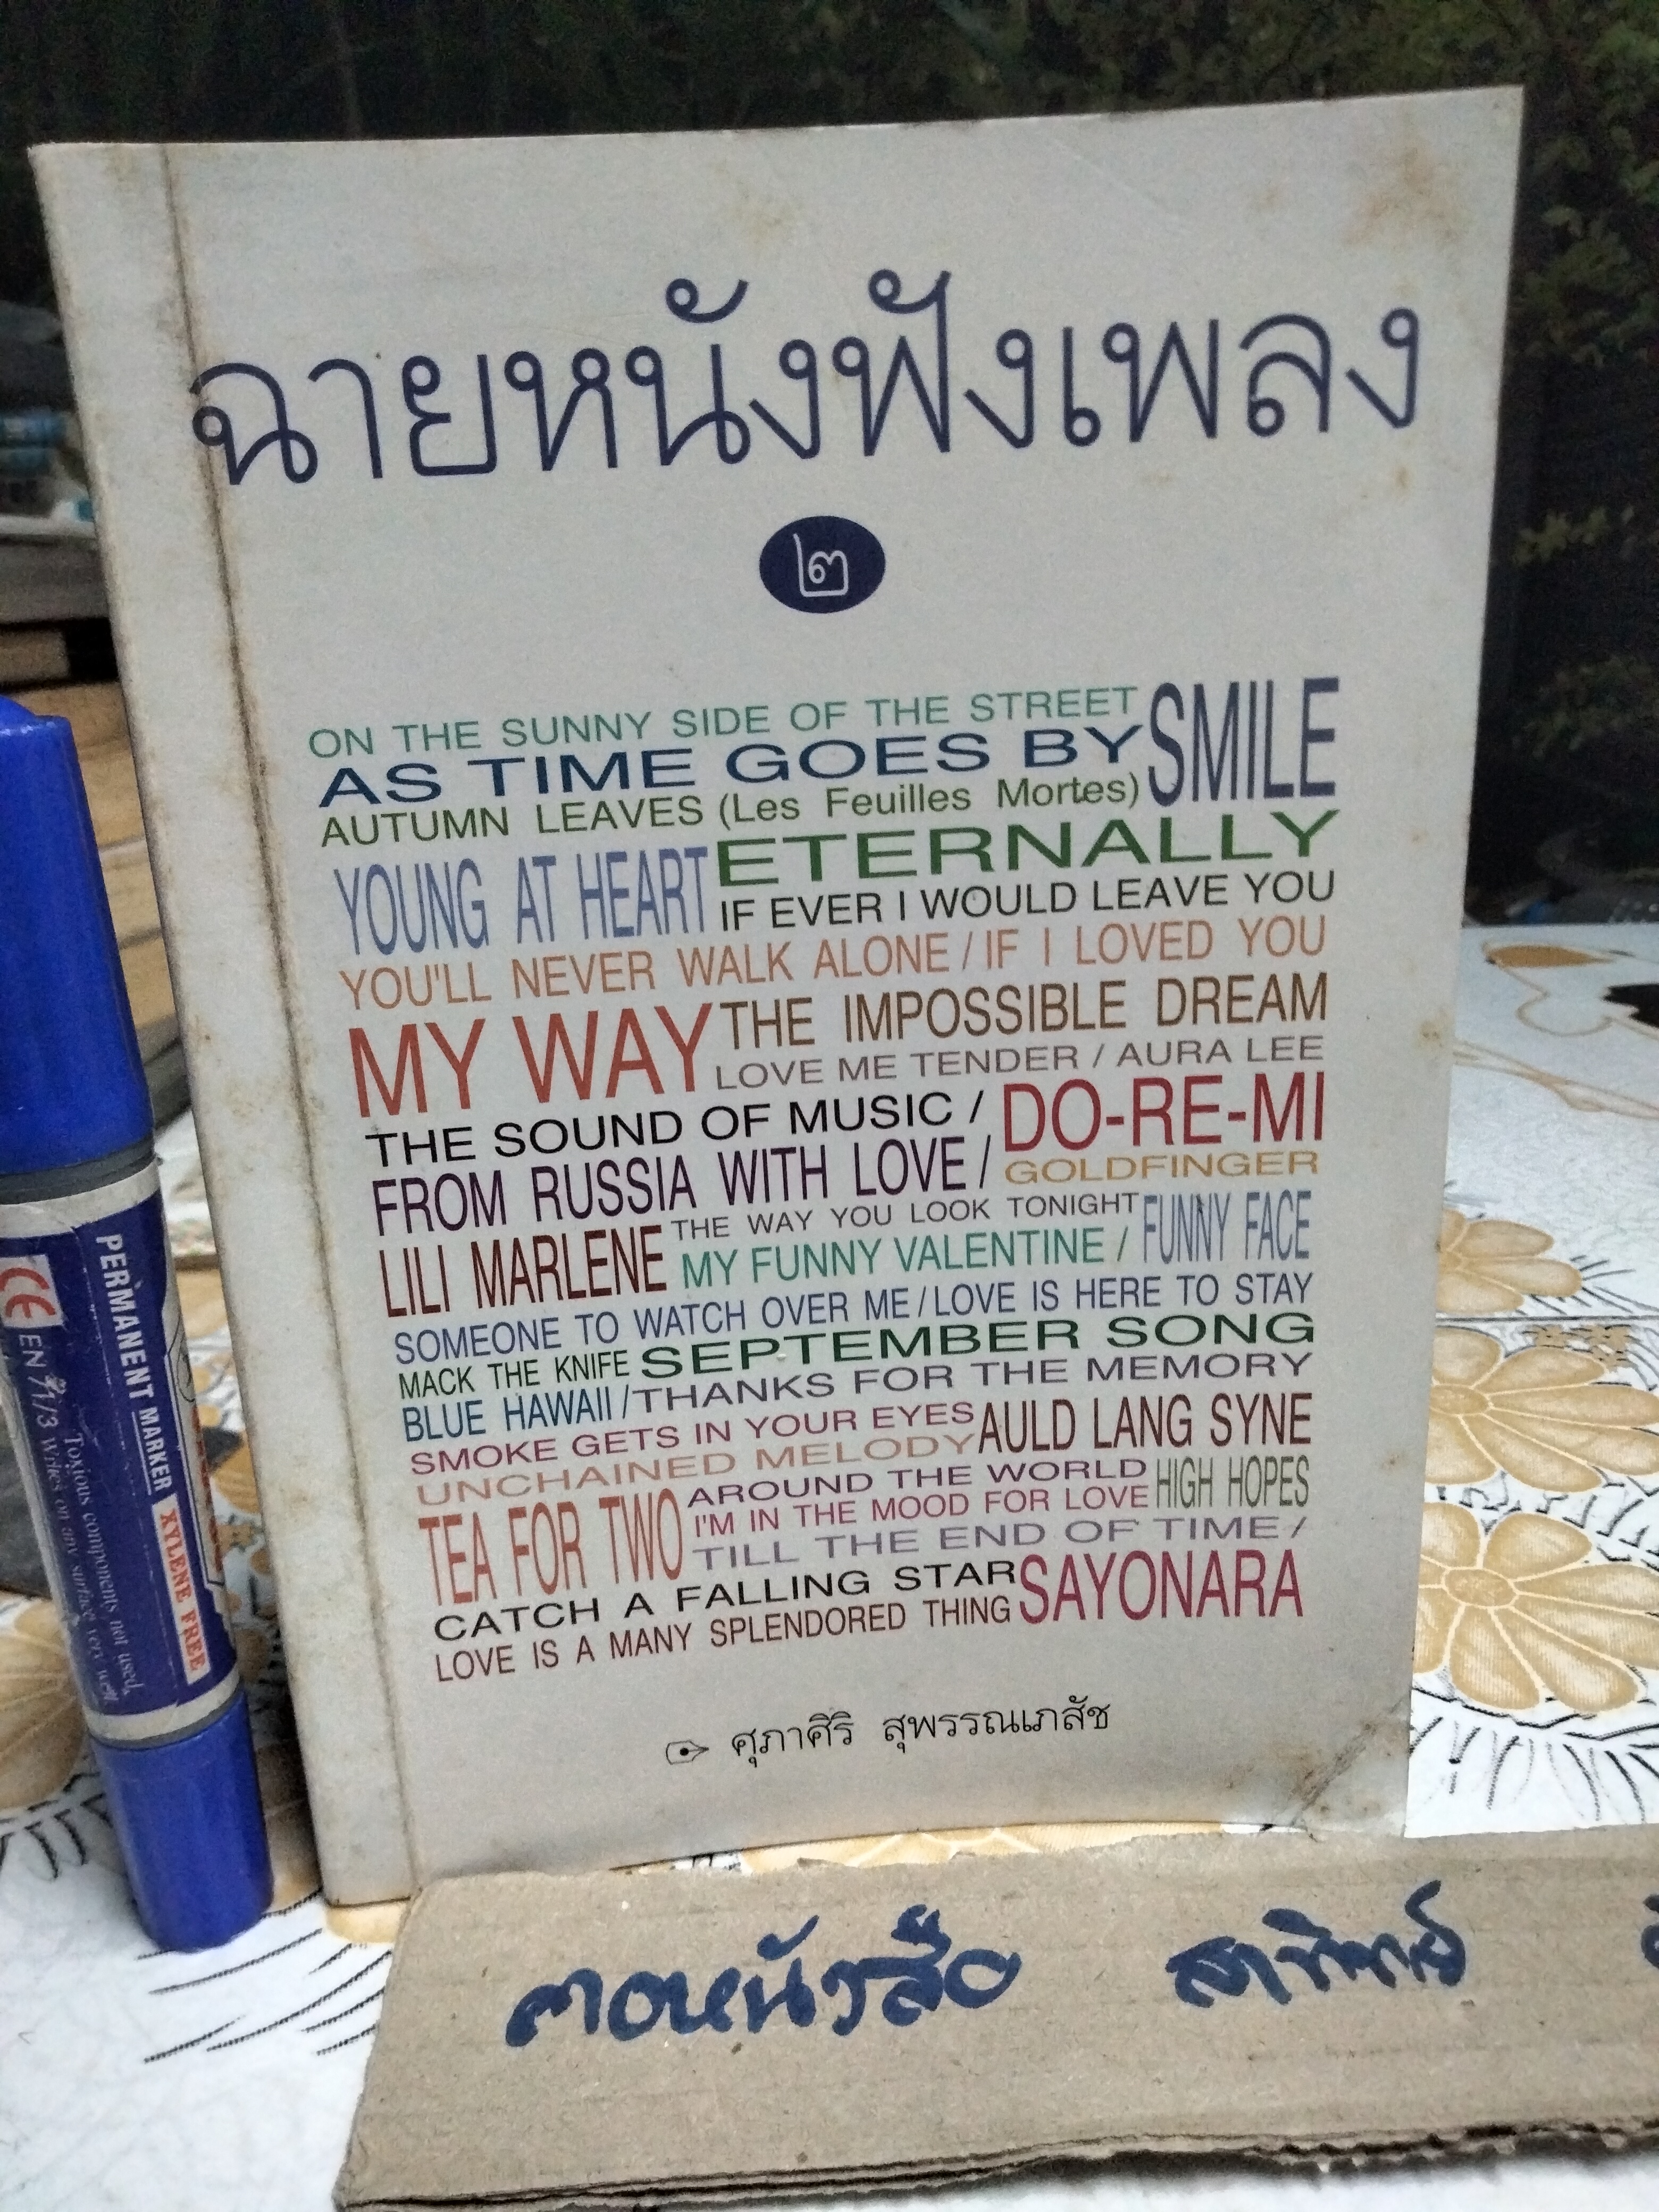 ฉายหนังฟังเพลง
๒
ON THE SUNNY SIDE OF THE STREET
AS TIME GOES BY SMILE
AUTUMN LEAVES (Les Feuilles Mortes)
YOUNG AT HEART ETERNALLY
IF EVER I WOULD LEAVE YOU
YOU'LL NEVER WALK ALONE / IF I LOVED YOU
MY WAY THE IMPOSSIBLE DREAM
LOVE ME TENDER / AURA LEE
THE SOUND OF MUSIC / DO-RE-MI
FROM RUSSIA WITH LOVE / GOLDFINGER
LILI MARLENE THE WAY YOU LOOK TONIGHT
MY FUNNY VALENTINE / FUNNY FACE
SOMEONE TO WATCH OVER ME / LOVE IS HERE TO STAY
MACK THE KNIFE SEPTEMBER SONG
BLUE HAWAII / THANKS FOR THE MEMORY
SMOKE GETS IN YOUR EYES AULD LANG SYNE
UNCHAINED MELODY
TEA FOR TWO AROUND THE WORLD HIGH HOPES
I'M IN THE MOOD FOR LOVE
TILL THE END OF TIME /
CATCH A FALLING STAR SAYONARA
LOVE IS A MANY SPLENDORED THING
ศุภาศิริ สุพรรณเภสัช
PERMANENT MARKER XYLENE FREE
Toxious components not used.
CE EN 71/3 Writes on any surface very well